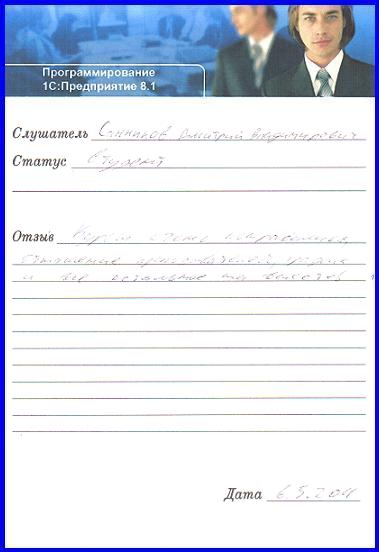 Программирование
1С:Предприятие 8.1
Слушатель Санников Дмитрий Владимирович
Статус Студент
Отзыв Курсы очень понравились,
отношение преподавателей, уроки
и все остальное на высоте!
Дата 6.5.2011